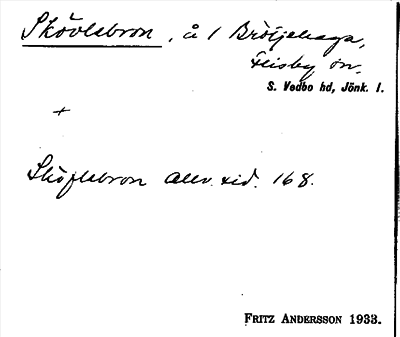 Skövlabron, å 1 Brötjehaga,
Flisby sn.
S. Vedbo hd, Jönk. l.
+
Sköflabron Allv. tid. 168.
FRITZ ANDERSSON 1933.